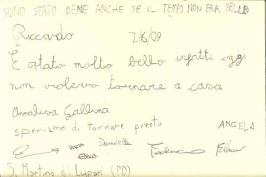 SONO STATO BENE ANCHE SE IL TEMPO NON ERA BELLO
Riccardo 2/6/09
È stato molto bello infatti oggi
non volevo tornare a casa
Annalisa Gallina
speriamo di tornare presto
ANGELA
Daniela Federico
S. Martino di Lupari (PD)